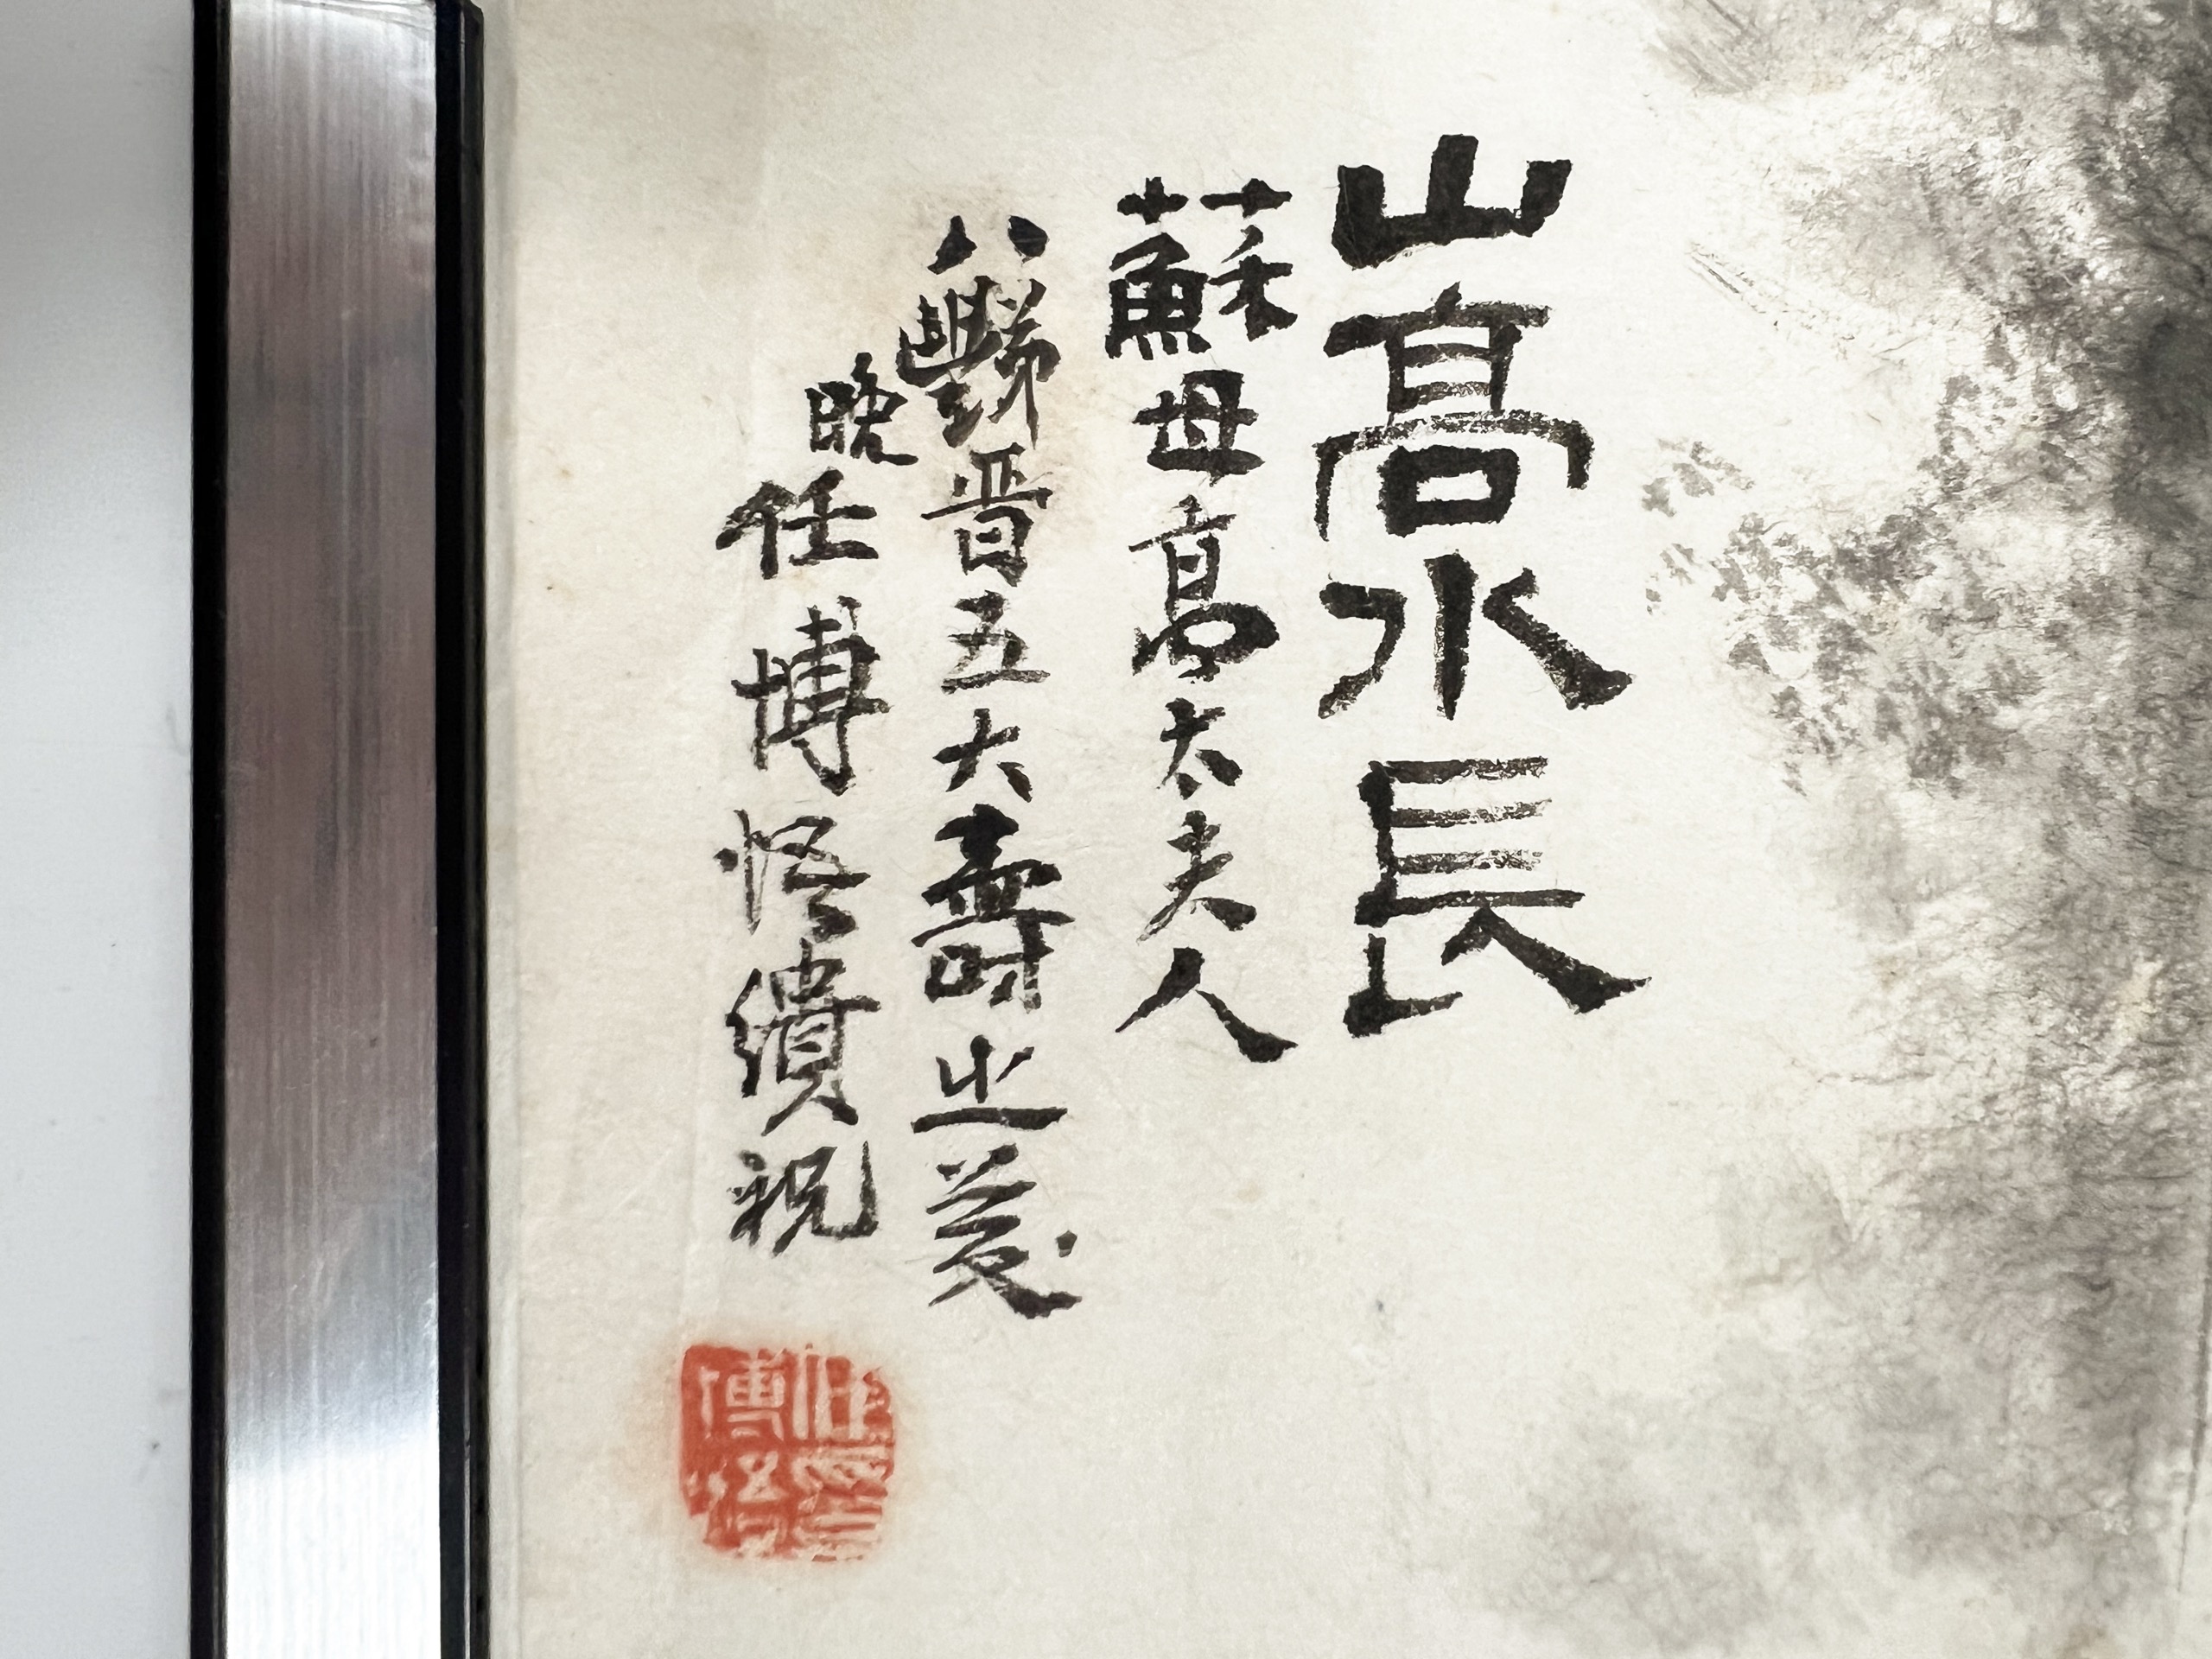 山高水長
蘇母高太夫人
八豒晋五大壽之慶
晚任博悟繢祝
任印博悟